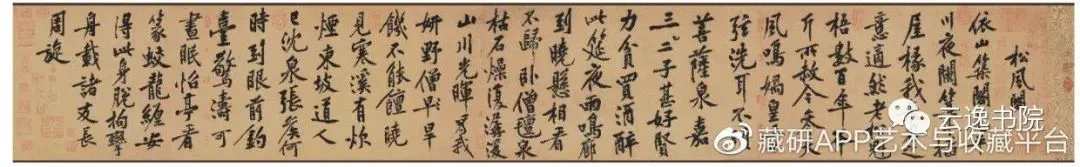 松風閣
依山築閣
川夜闌箕
屋椽我
意適然老
梧數百年
斤所赦今參
風鳴媧皇
弦洗耳不
菩薩泉嘉
三二子甚好賢
力貧買酒醉
此筵夜雨鳴廊
到曉懸相看
不歸臥僧氈泉
枯石燥復潺湲
山川光暉為我
妍野僧早旱
饑不能饘曉
見寒溪有炊
煙東坡道人
已沈泉張侯何
時到眼前釣
臺驚濤可
晝眠怡亭看
篆蛟龍纏安
得此身脫拘攣
舟載諸友長
周旋
云逸书院
藏研APP艺术与收藏平台